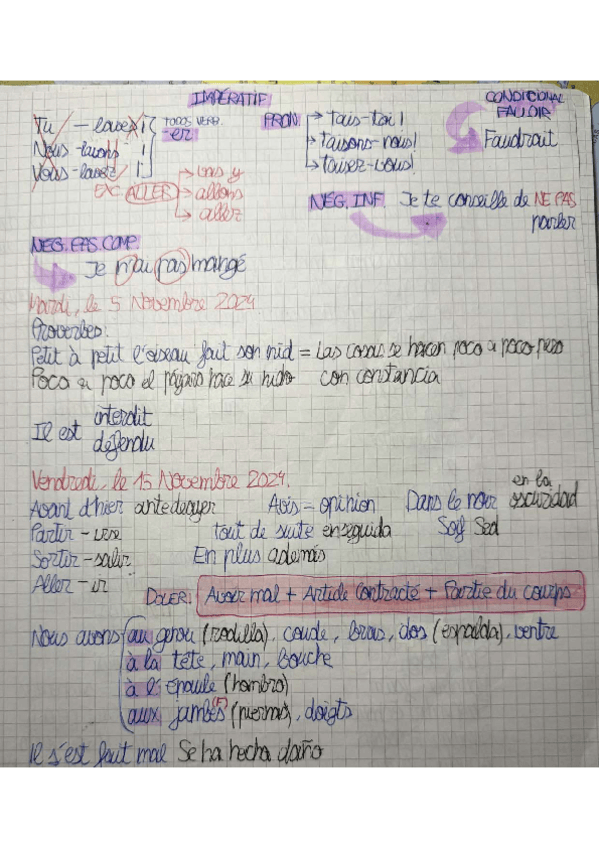 IMPÉRATIF
Tu - laves !
Nous - lavons !
Vous - lavez !
TODOS VERB.
-er
EXC ALLER
vas y
allons
allez
PRON.
Tais-toi !
Taisons-nous !
Taisez-vous !
CONDICIONAL
FALLOIR
Faudrait
NEG. INF. Je te conseille de NE PAS
parler
NEG. PAS. COMP.
Je n'ai pas mangé
Mardi, le 5 Novembre 2024
Proverbes:
Petit à petit l'oiseau fait son nid = Las cosas se hacen poco a poco pero
Poco a poco el pájaro hace su nido con constancia
Il est interdit
défendu
Vendredi, le 15 Novembre 2024.
Avant d'hier antedeayer Avis - opinion Dans le noir en la oscuridad
Partir - irse tout de suite enseguida Soif Sed
Sortir - salir En plus además
Aller - ir
DOLER: Avoir mal + Article Contracté + Partie du corps
Nous avons au genou (rodilla), coude, bras, dos (espalda), ventre
à la tête, main, bouche
à l'épaule (hombro)
aux jambes (F) (piernas), doigts
Il s'est fait mal Se ha hecho daño